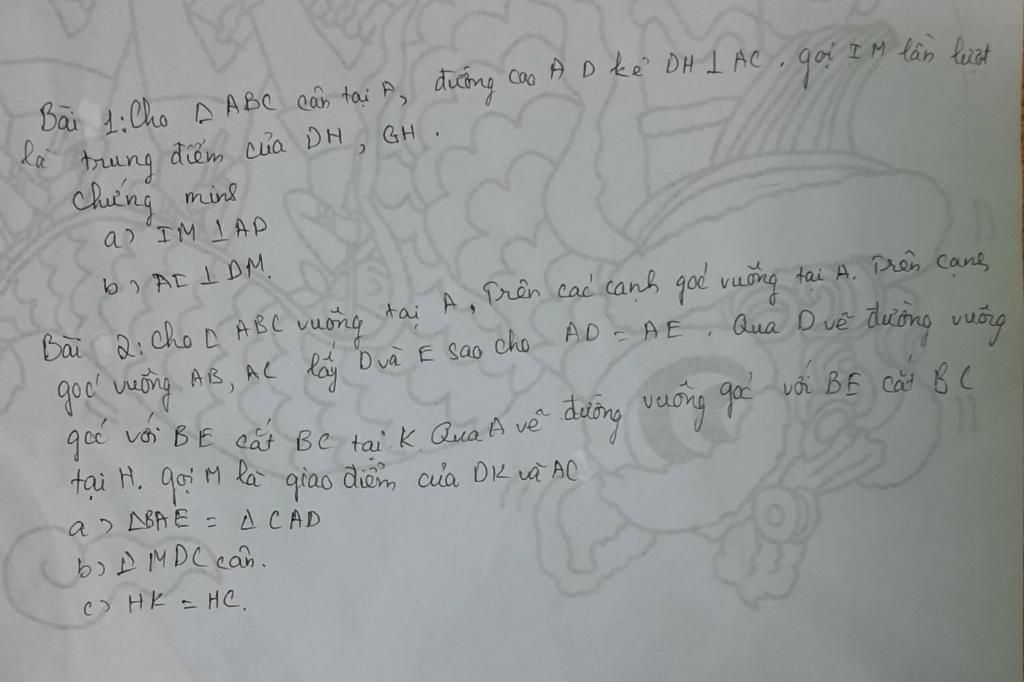 Bài 1: Cho Δ ABC cân tại A, đường cao A D kẻ DH ⊥ AC. gọi I M lần lượt
là trung điểm của DH, GH.
Chứng minh
a) IM ⊥ AD
b) AI ⊥ DM.
Bài 2: Cho Δ ABC vuông tại A, Trên các cạnh góc vuông tại A. Trên cạnh
góc vuông AB, AC lấy D và E sao cho AD = AE. Qua D vẽ đường vuông
góc với BE cắt BC tại K. Qua A vẽ đường vuông góc với BE cắt BC
tại H. gọi M là giao điểm của DK và AC
a) ΔBAE = Δ CAD
b) Δ MDC cân.
c) HK = HC.